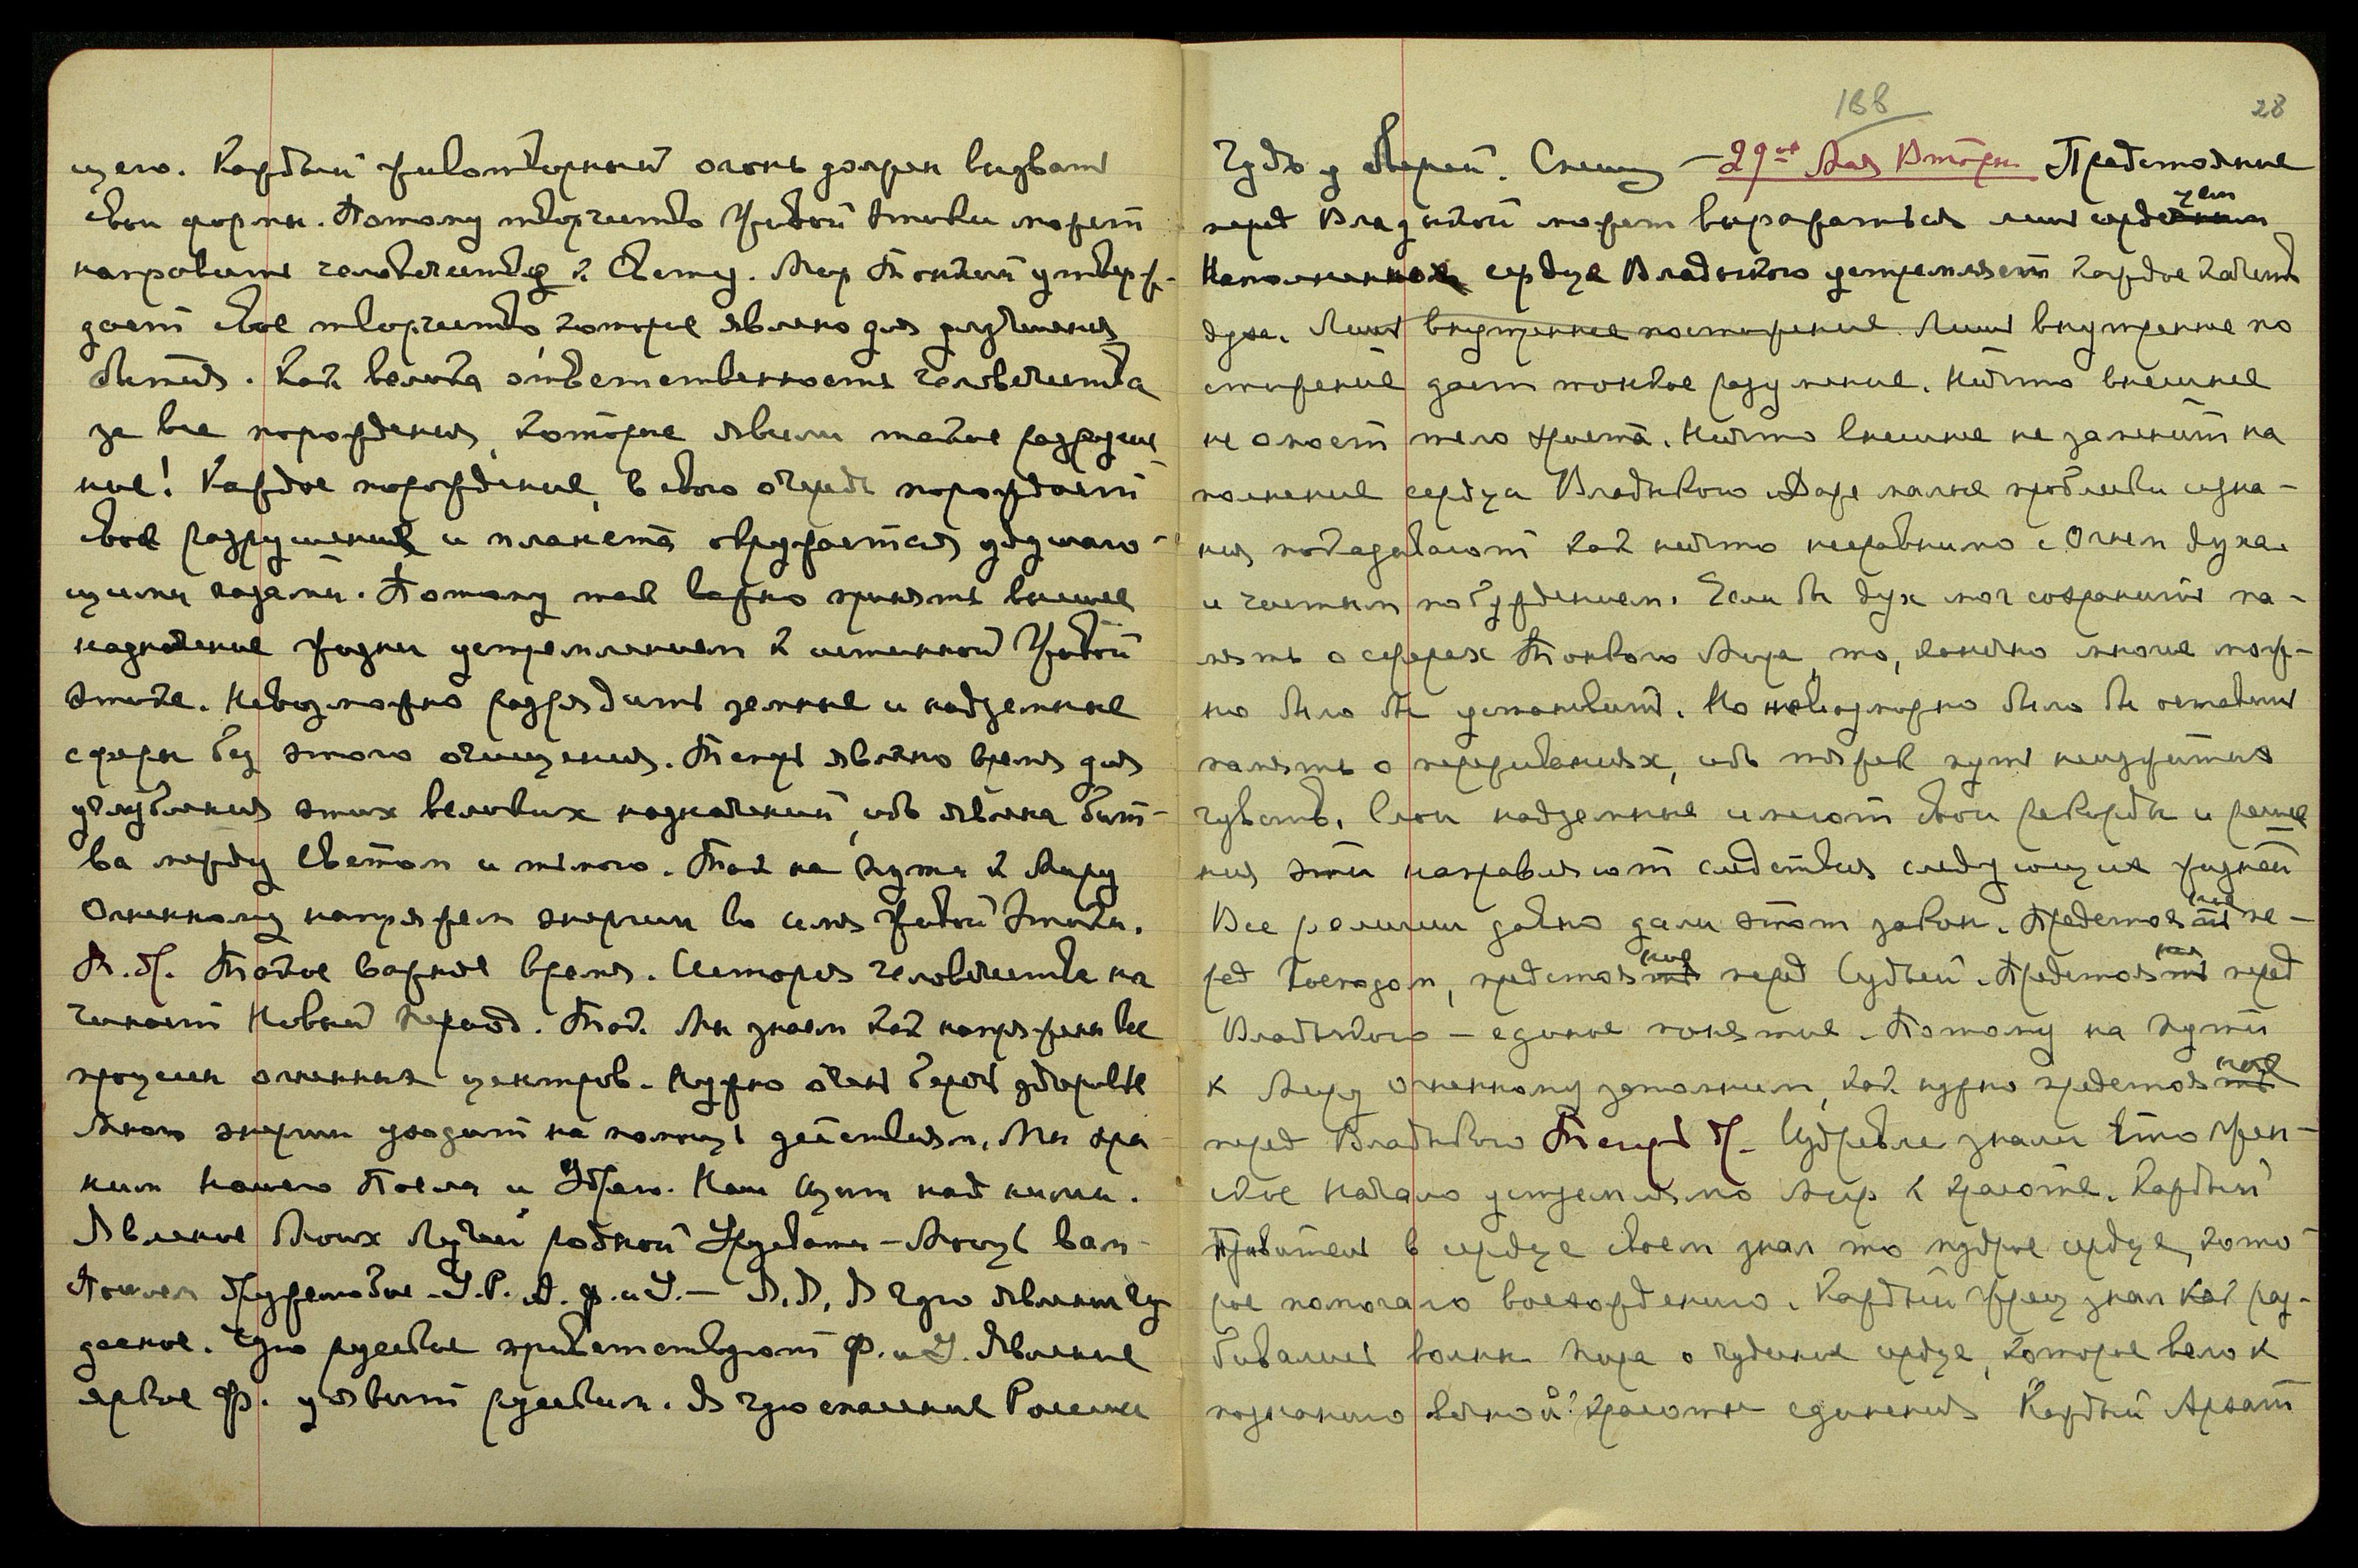 щего. Каждый животворный огонь должен вызвать
свои формы. Потому творчество Живой Этики может
направить человечество к Свету. Мир Тонкий утверж-
дает свое творчество, которое явлено для улучшения
бытия. Как велика ответственность человечества
за все порождения, которые явили такое разруше
ние! Каждое порождение, в свою очередь порождает
свое разрушение и планета окружается удушаю-
щими газами. Потому так важно принять высшее
назначение жизни устремлением к истинной Живой
Этике. Невозможно разрядить земные и надземные
сферы без этого очищения. Теперь явлено время для
углубления этих великих назначений, ибо явлена бит-
ва между Светом и тьмою. Так на пути к Миру
Огненному напряжем энергии во имя Живой Этики.
Такое важное время. История человечества на
чинает Новый период. Так. Мы знаем как напряжены все
процессы огненных центров. Нужно очень беречь здоровье
Много энергии уходит на помощь действиям. Мы хра
ним Нашего Посла и Удраю. Наш Щит над ними.
Явление Моих Лучей родной Урусвати – Мощь вам –
Пошлем У.Р. Ф. и У. – Я чую явления чу
десное. Чую русские приветствуют Ф. и У. Явление
яркое Ф. уявит русским. Я чую спасение России
188
28
Чудь у дверей. Спешу – 29ое Мая Вторн. Предстояние
перед Владыкой может выражаться лишь сердцем
Наполненное сердце Владыкою устремляет каждое качество
духа. Лишь внутреннее постижение. Лишь внутреннее по
стижение дает тонкое разумение. Ничто внешнее
не омоет тело Христа. Ничто внешнее не заменит на
полнение сердца Владыкою. Даже малые проблески созна-
ния показывают как ничто несравнимо с Огнем духа.
и чистым побуждением. Если бы дух мог сохранить па-
мять о сферах Тонкого Мира, то, конечно многое мож-
но было бы установить. Но невозможно было бы оставить
память о переживаниях, ибо тяжек путь неизжитых
чувств. Слои надземные имеют свои рекорды и реше
ния эти направляют следствия следующих жизней
Все религии давно дали этот закон. Предстояние пе-
ред Господом, предстояние перед Судьей. Предстояние перед
Владыкою – единое понятие. Потому на пути
к Миру Огненному запомним, как нужно предстояние
перед Владыкою Теперь Я. Издревле знали что Жен-
ское Начало устремляло Мир к красоте. Каждый
Правитель в сердце своем знал то мудрое сердце, кото
рое помогало восхождению. Каждый Жрец знал как раз-
бивались волны мира о чудесное сердце, которое вело к
познанию вечной? красоты единения. Каждый Архат